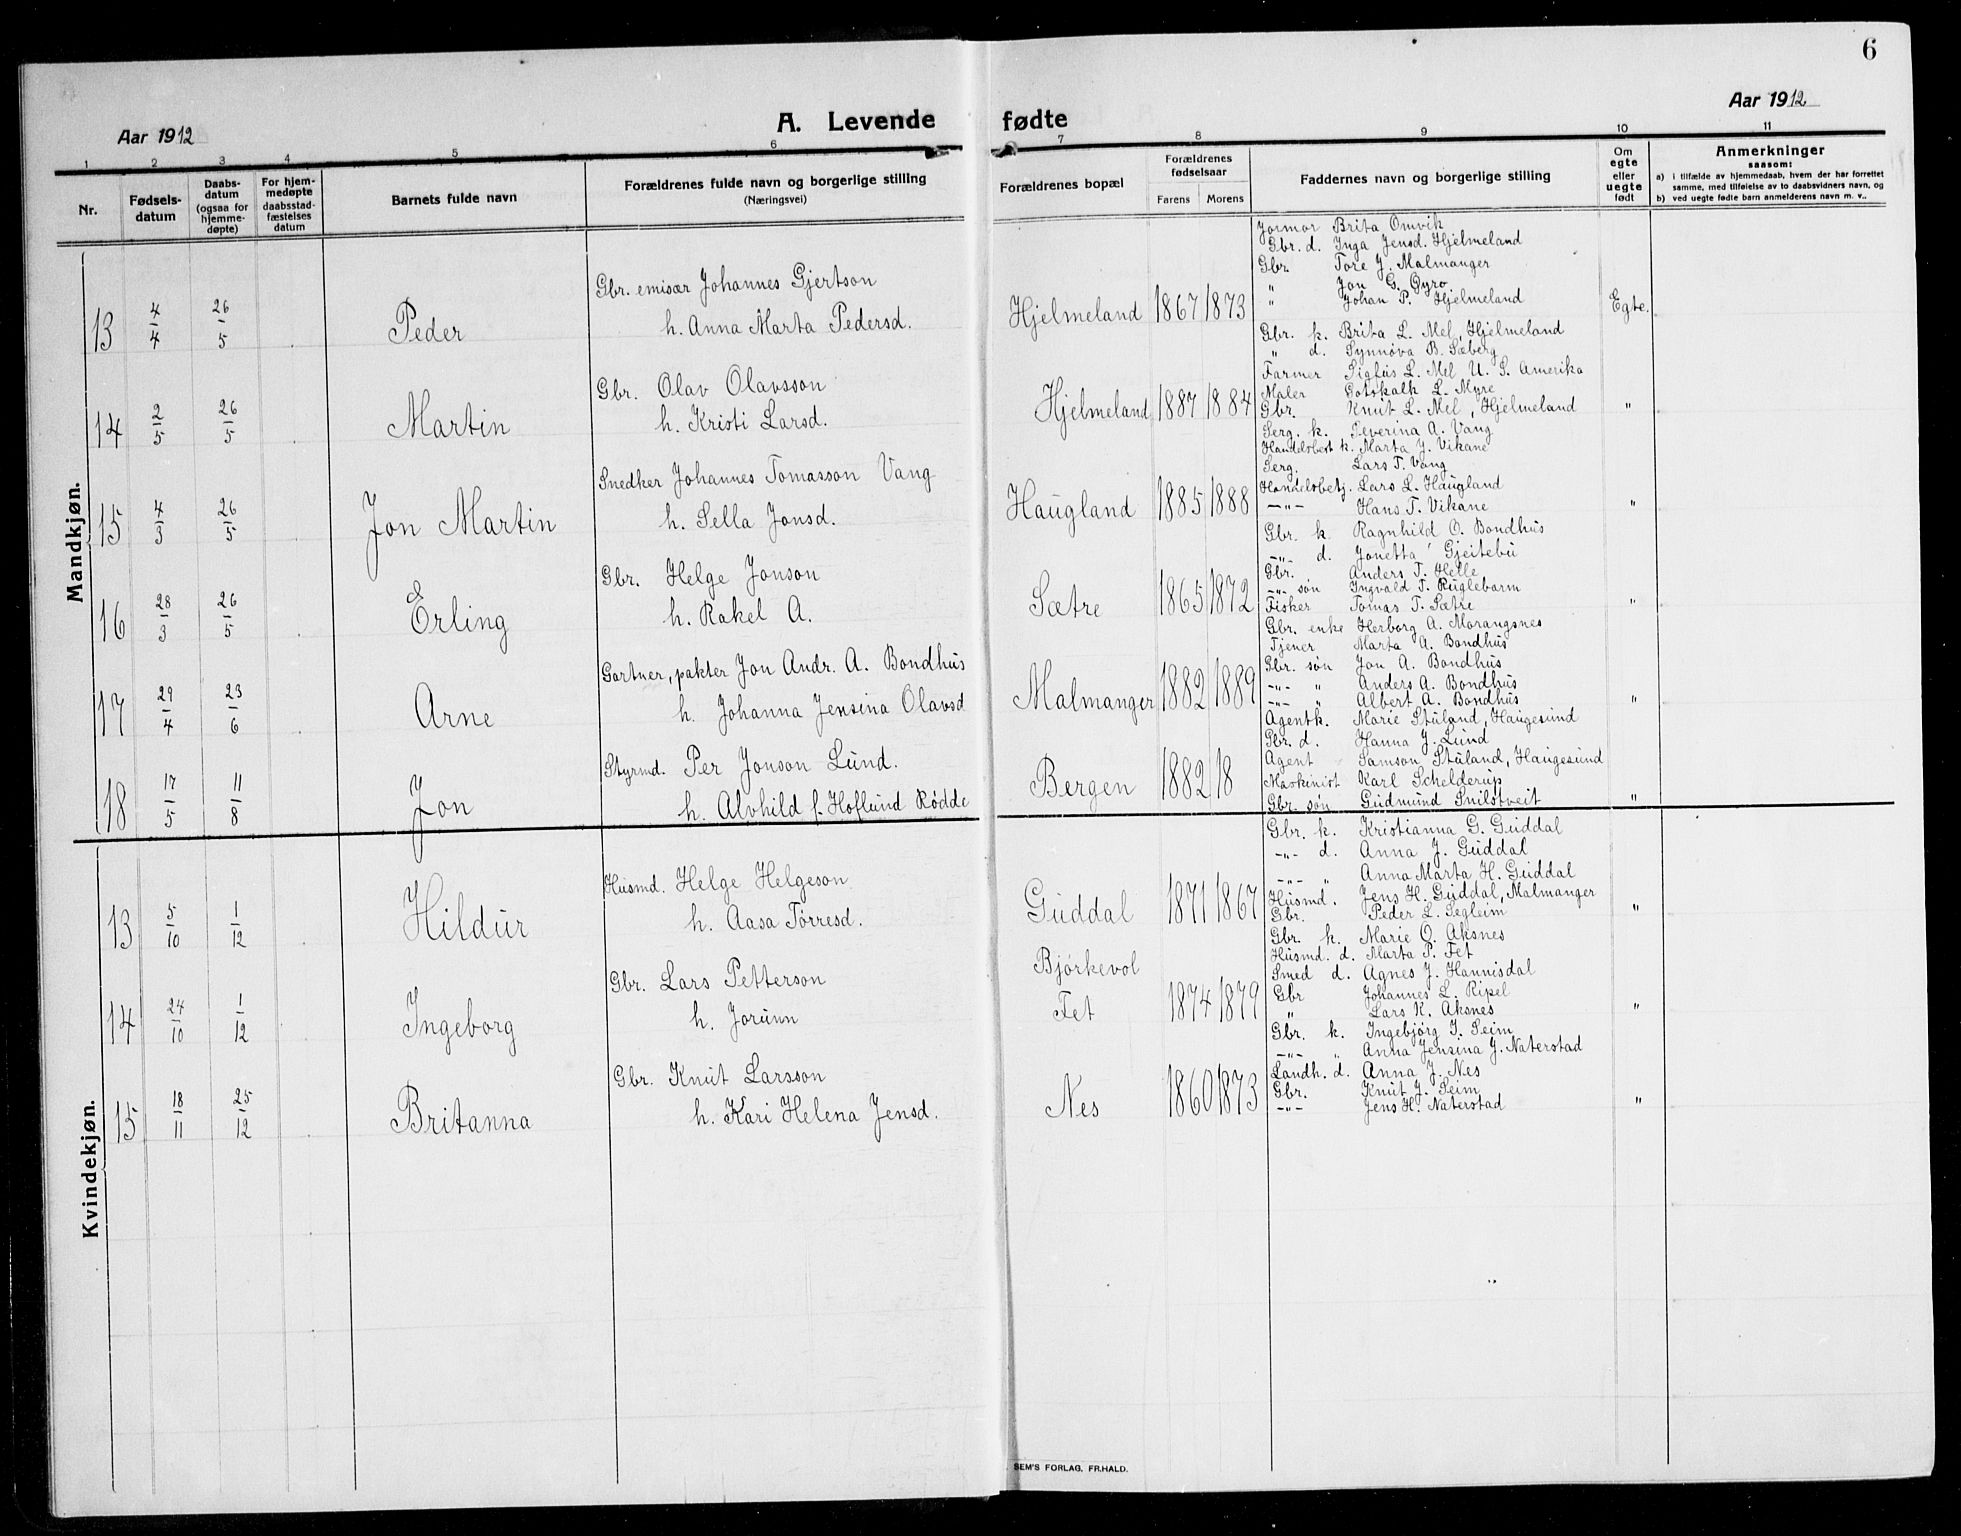 6
Aar 1912
A. Levende fødte
Aar 1912
1 2 3 4 5 6 7 8 9 10 11
Nr.
Fødselsdatum
Daabsdatum (ogsaa for hjemmedøpte)
For hjemmedøpte daabsstadfæstelses datum
Barnets fulde navn
Forældrenes fulde navn og borgerlige stilling
(Næringsvei)
Forældrenes bopæl
Forældrenes fødselsaar
Farens Morens
Faddernes navn og borgerlige stilling
Om egte eller uegte født
Anmerkninger
saasom:
a) i tilfælde av hjemmedaab, hvem der har forrettet samme, med tilføielse av to daabsvidners navn, og
b) ved uegte fødte barn anmelderens navn m. v..
Mandkjøn.
13 4/4 26/5 Peder
Gbr. emisær Johannes Gjertson
h. Anna Marta Pedersd.
Hjelmeland 1867 1873
Jormor Brita Omvik
Gbr. d. Inga Jensd. Hjelmeland
Gbr. Tore J. Malmanger
" Jon G. Øyro
" Johan P. Hjelmeland
Egte.
14 2/5 26/5 Martin
Gbr. Olav Olavsson
h. Kristi Larsd.
Hjelmeland 1887 1884
Gbr. k. Brita L. Mel, Hjelmeland
" d. Synnøva B. Sæberg
Farmer Sigfus L. Mel U. S. Amerika
Maler Gotskalk L. Myre
Gbr. Knut L. Mel, Hjelmeland
"
15 4/3 26/5 Jon Martin
Snedker Johannes Tomasson Vang
h. Sella Jonsd.
Haugland 1885 1888
Serg. k. Severina A. Vang
Handelsbest k. Marta J. Vikane
Serg. Lars T. Vang
Handelsbetj. Lars L. Haugland
—"— Hans T. Vikane
"
16 28/3 26/5 Erling
Gbr. Helge Jonson
h. Rakel A.
Sætre 1865 1872
Gbr. k Ragnhild O. Bondhus
—"— d. Jonetta Gjeitebu
Gbr. Anders T. Helle
—"— søn Ingvald T. Ruglebarm
Fisker Tomas T. Sætre
"
17 29/4 23/6 Arne
Gartner, pakter Jon Andr. A. Bondhus
h. Johanna Jensina Olavsd
Malmanger 1882 1889
Gbr. enke Herborg A. Morangsnes
Tjener Marta A. Bondhus
Gbr. søn Jon A. Bondhus
—"— " Anders A. Bondhus
—"— " Albert A. Bondhus
"
18 17/5 11/8 Jon
Styrmd. Per Jonson Lund.
h. Alvhild f. Hoflund Rødde
Bergen 1882 18
Agentk. Marie Stuland, Haugesund
Gbr. d. Hanna J. Lund
Agent Samson Stuland, Haugesund
Maskinist Karl Schelderup
Gbr. søn Gudmund Snilstveit
"
Kvindekjøn.
13 5/10 1/12 Hildur
Husmd. Helge Helgeson
h. Aasa Tørresd.
Guddal 1871 1867
Gbr. k. Kristianna G. Guddal
—"— d. Anna J. Guddal
—"— " Anna Marta H. Guddal
Husmd. Jens H. Guddal, Malmanger
Gbr. Peder L. Segleim
"
14 24/10 1/12 Ingeborg
Gbr. Lars Petterson
h. Jorunn
Bjørkevol
Fet 1874 1879
Gbr. k. Marie O. Aksnes
Husmd. d. Marta P. Fet
Smed d. Agnes J. Hannisdal
Gbr Johannes L. Ripel
" Lars K. Aksnes
"
15 18/11 25/12 Britanna
Gbr. Knut Larsson
h. Kari Helena Jensd.
Nes 1860 1873
Gbr. k. Ingebjørg J. Seim
—"— " Anna Jensina J. Naterstad
Landh. d. Anna J. Nes
Gbr. Knut J. Seim
—"— Jens H. Naterstad
"
SEM'S FORLAG, FR.HALD.